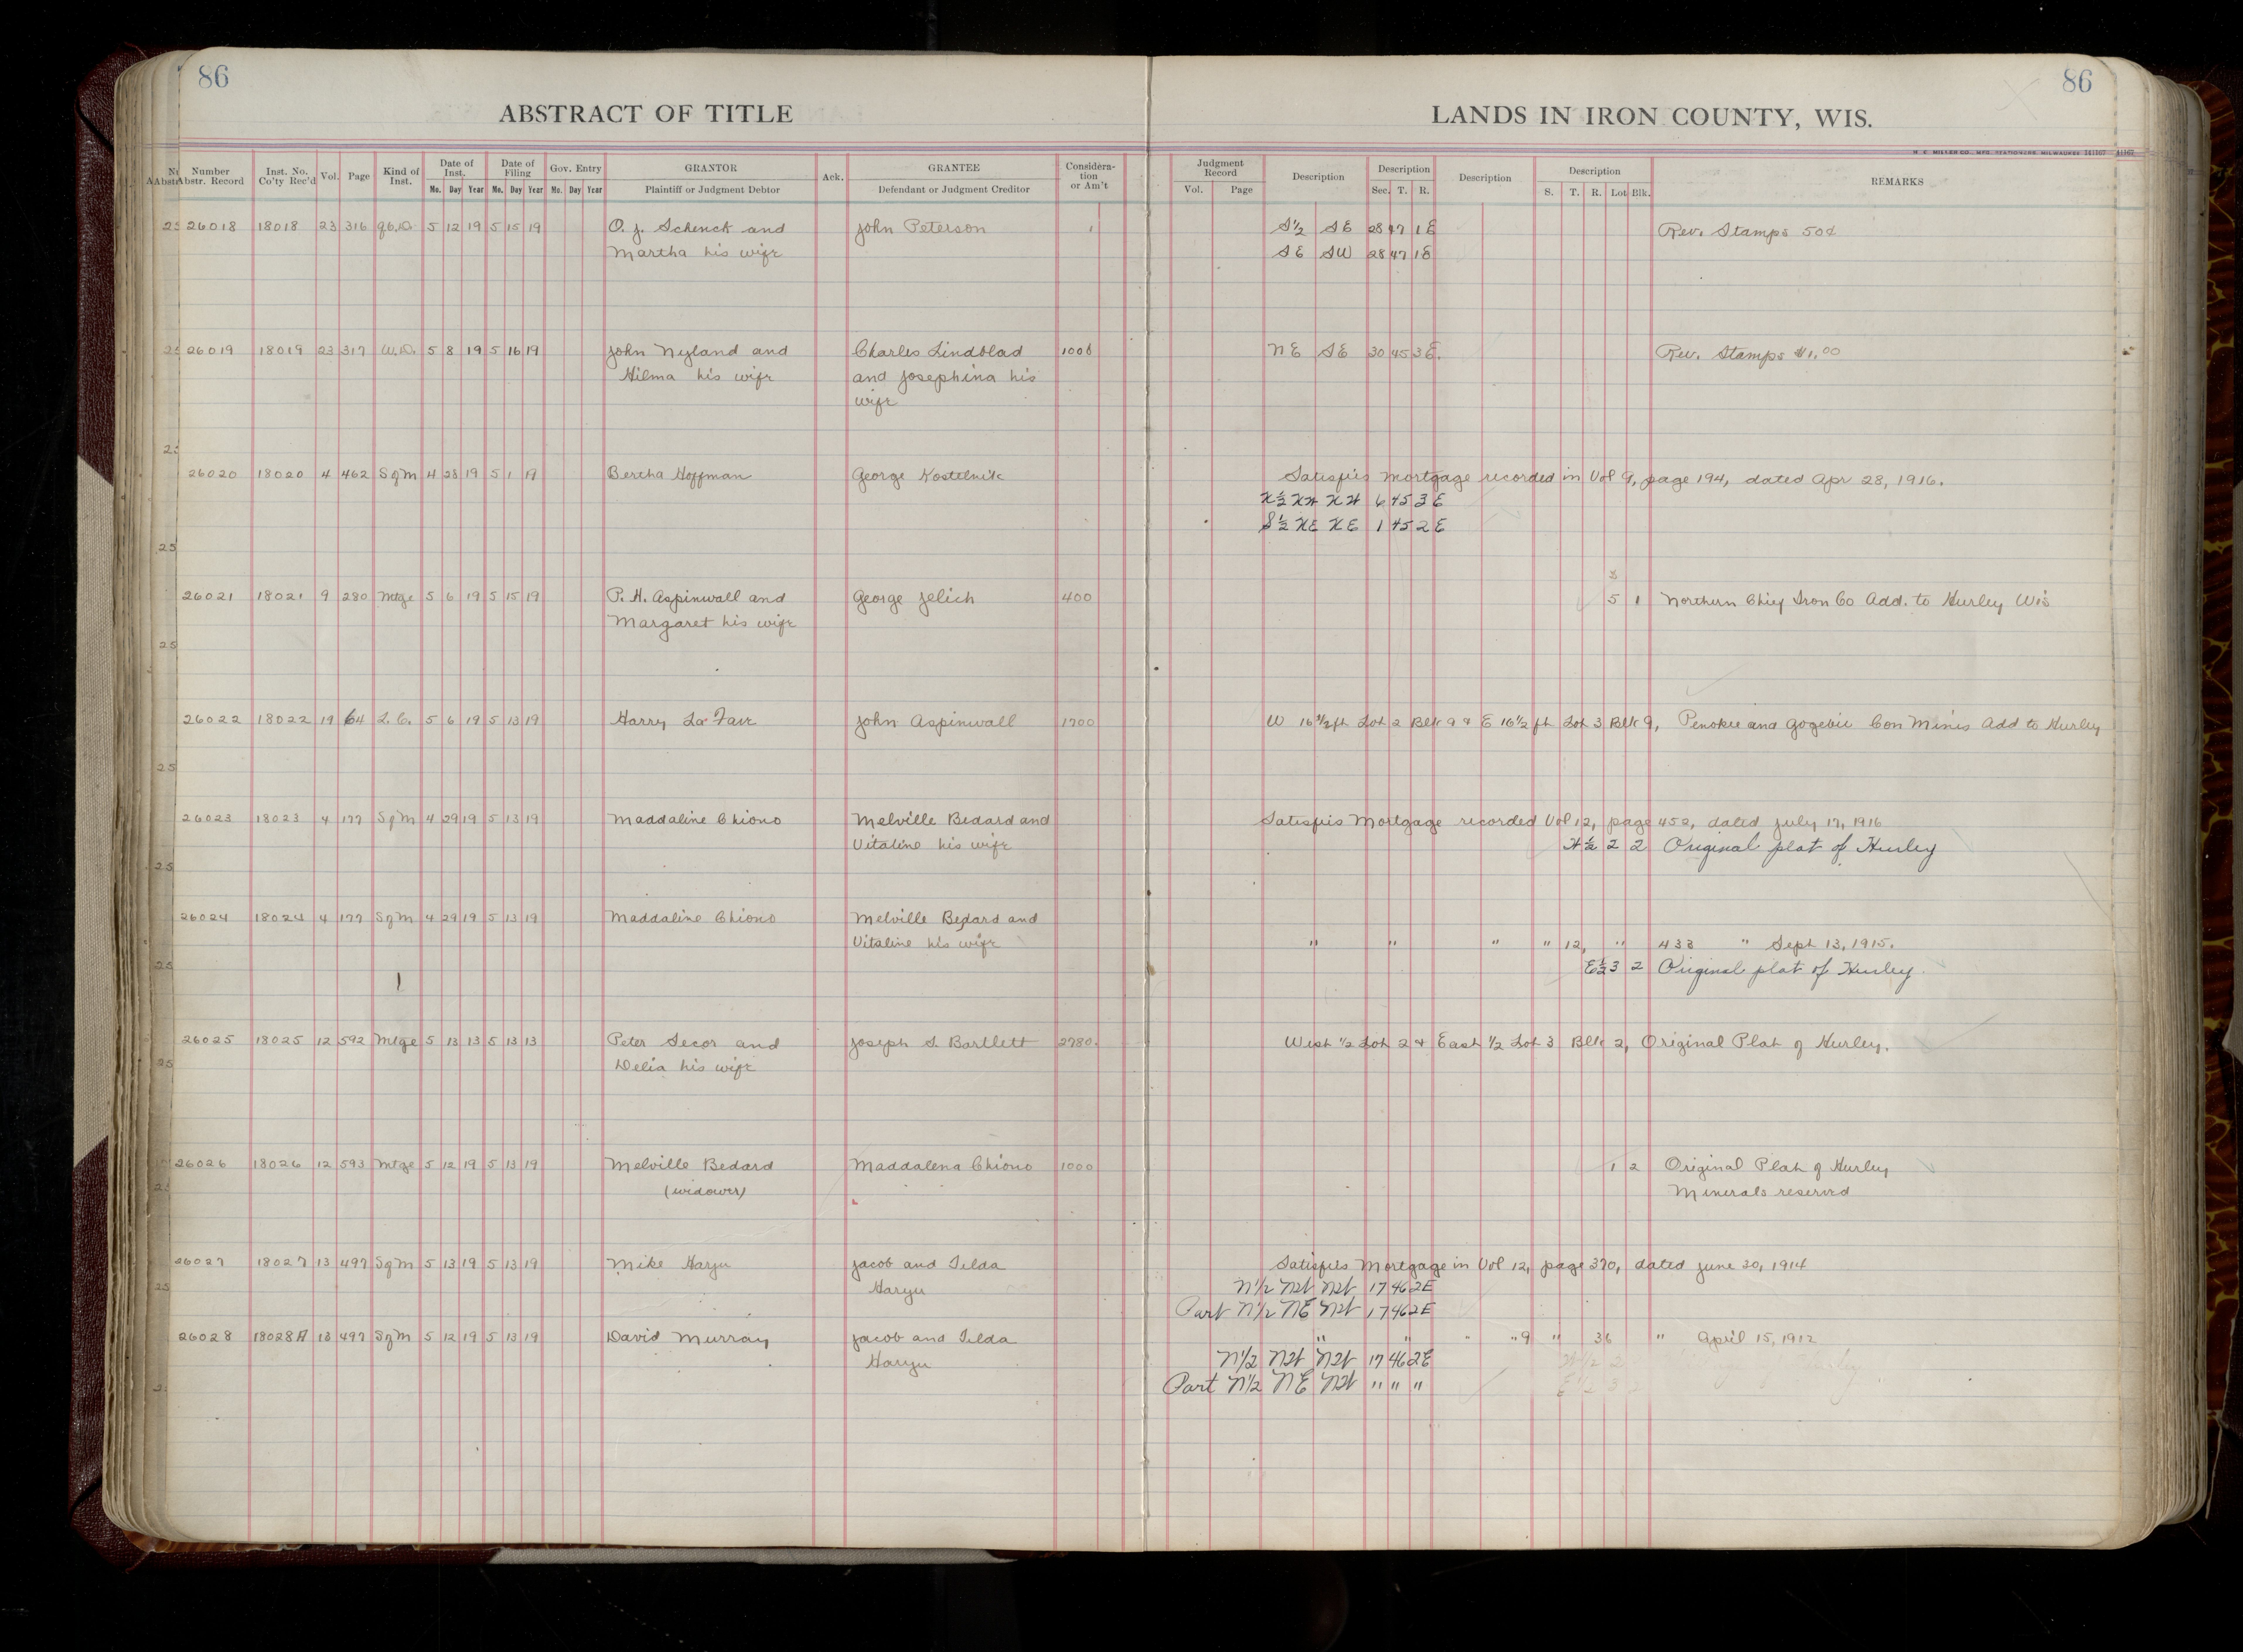 86
86
ABSTRACT OF TITLE
LANDS IN IRON COUNTY, WIS.
H. C. MILLER CO., MFG. STATIONERS, MILWAUKEE 141167
Number Abstr. Record | Inst. No. Co'ty Rec'd | Vol. | Page | Kind of Inst. | Date of Inst. Mo. Day Year | Date of Filing Mo. Day Year | Gov. Entry Mo. Day Year | GRANTOR Plaintiff or Judgment Debtor | Ack. | GRANTEE Defendant or Judgment Creditor | Consideration or Am't | Judgment Record Vol. Page | Description | Description Sec. T. R. | Description | Description S. T. R. Lot Blk. | REMARKS
26018 18018 23 316 Q.C.D. 5 12 19 5 15 19 O. J. Schenck and John Peterson 1 S½ SE 28 47 1E Rev. Stamps 50¢
Martha his wife SE SW 28 47 1E
26019 18019 23 317 W.D. 5 8 19 5 16 19 John Nyland and Charles Lindblad 1000 NE SE 30 45 3E. Rev. Stamps $1.00
Hilma his wife and Josephina his
wife
26020 18020 4 462 SqM 4 28 19 5 1 19 Bertha Hoffman George Kostelnik Satisfies Mortgage recorded in Vol 9, page 194, dated Apr 28, 1916.
N½ NW NW 6 45 3 E
S½ NE NE 1 45 2 E
26021 18021 9 280 Mtge 5 6 19 5 15 19 P. H. Aspinwall and George Jelich 400 5 1 Northern Chief Iron Co Add. to Hurley Wis
Margaret his wife
26022 18022 19 64 L.C. 5 6 19 5 13 19 Harry La Fave John Aspinwall 1700 W 16½ ft Lot 2 Blk 9 & E 16½ ft Lot 3 Blk 9, Penokee and Gogebic Con Mines Add to Hurley
26023 18023 4 177 SqM 4 29 19 5 13 19 Maddaline Chiono Melville Bedard and Satisfies Mortgage recorded Vol 12, page 452, dated July 17, 1916
Vitaline his wife W½ 2 2 Original plat of Hurley
26024 18024 4 177 SqM 4 29 19 5 13 19 Maddaline Chiono Melville Bedard and
Vitaline his wife " " " " 12, " 433 " Sept 13, 1915.
E½ 3 2 Original plat of Hurley.
26025 18025 12 592 Mtge 5 13 13 5 13 13 Peter Secor and Joseph S Bartlett 2780. West ½ Lot 2 & East ½ Lot 3 Blk 2, Original Plat of Hurley.
Delia his wife
26026 18026 12 593 Mtge 5 12 19 5 13 19 Melville Bedard Maddalena Chiono 1000 1 2 Original Plat of Hurley
(widower) Minerals reserved
26027 18027 13 497 SqM 5 13 19 5 13 19 Mike Harju Jacob and Tilda Satisfies Mortgage in Vol 12, page 370, dated June 30, 1914
Harju N½ NW NW 17 46 2E
Part N½ NE NW 17 46 2E
26028 18028A 13 497 SqM 5 12 19 5 13 19 David Murray Jacob and Tilda " " " " 9 " 36 " April 15, 1912
Harju N½ NW NW 17 46 2E
Part N½ NE NW " " "